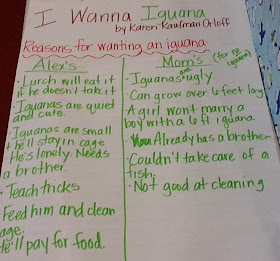 I Wanna Iguana
by Karen Kaufman Orloff
Reasons for wanting an iguana:
Alex's
Lurch will eat it
if he doesn't take it.
· Iguanas are quiet
and cute.
· Iguanas are small
+ he'll stay in cage
· He's lonely. Needs
a brother.
· Teach tricks
Feed him and clean
cage.
He'll pay for food.
Mom's (for not
iguana)
· Iguanas are ugly
· Can grow over 6 feet long
· A girl won't marry a
boy with a 6 ft. iguana
· Already has a brother
· Couldn't take care of a
fish.
· Not good at cleaning